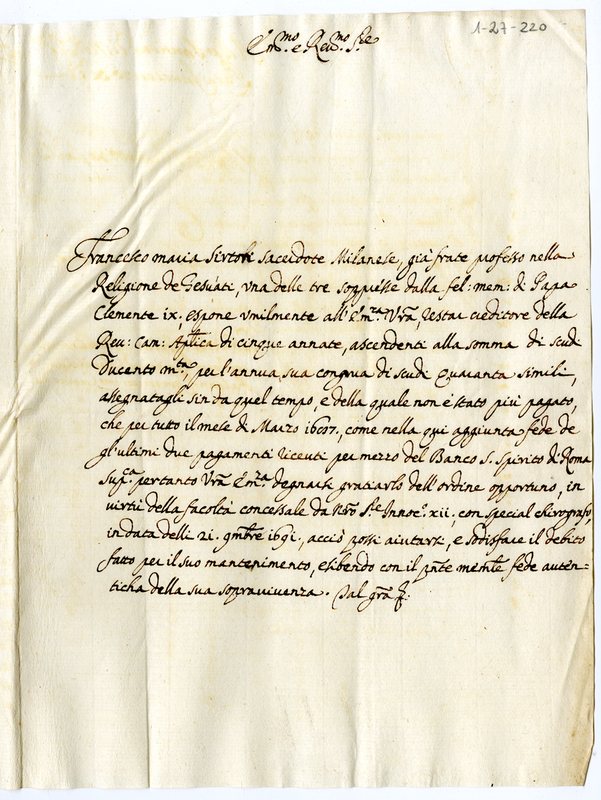 1-27-220
Em.mo e Reu.mo S.re
Francesco maria Sirtori sacerdote Milanese, già frate professo nella
Religione de Gesuati, vna delle tre soppresse dalla fel: mem: di Papa
Clemente ix, espone vmilmente all'E.mza Vra, resta creditore della
Reu: Cam: Aplica di cinque annate, ascendenti alla somma di scudi
Ducento m.ta, per l'annua sua congrua di scudi Quaranta simili,
assegnatagli sin da quel tempo, e della quale non è stato più pagato,
che per tutto il mese di Marzo, come nella qui aggiunta fede de
gl'ultimi due pagamenti riceuti per mezzo del Banco S. Spirito di Roma
Sup.ca pertanto Vra E.mza degnarsi gratiarlo dell'ordine opportuno, in
virtù della facoltà concessale da Nro Sre Innoc.o xii, con special chirografo,
in data delli 21. 9mbre 1691, acciò possi aiutarsi, e sodisfare il debito
fatto per il suo mantenimento, esibendo con il pnte memle fede auten=
ticha della sua sopravivenza. Qual gra &.